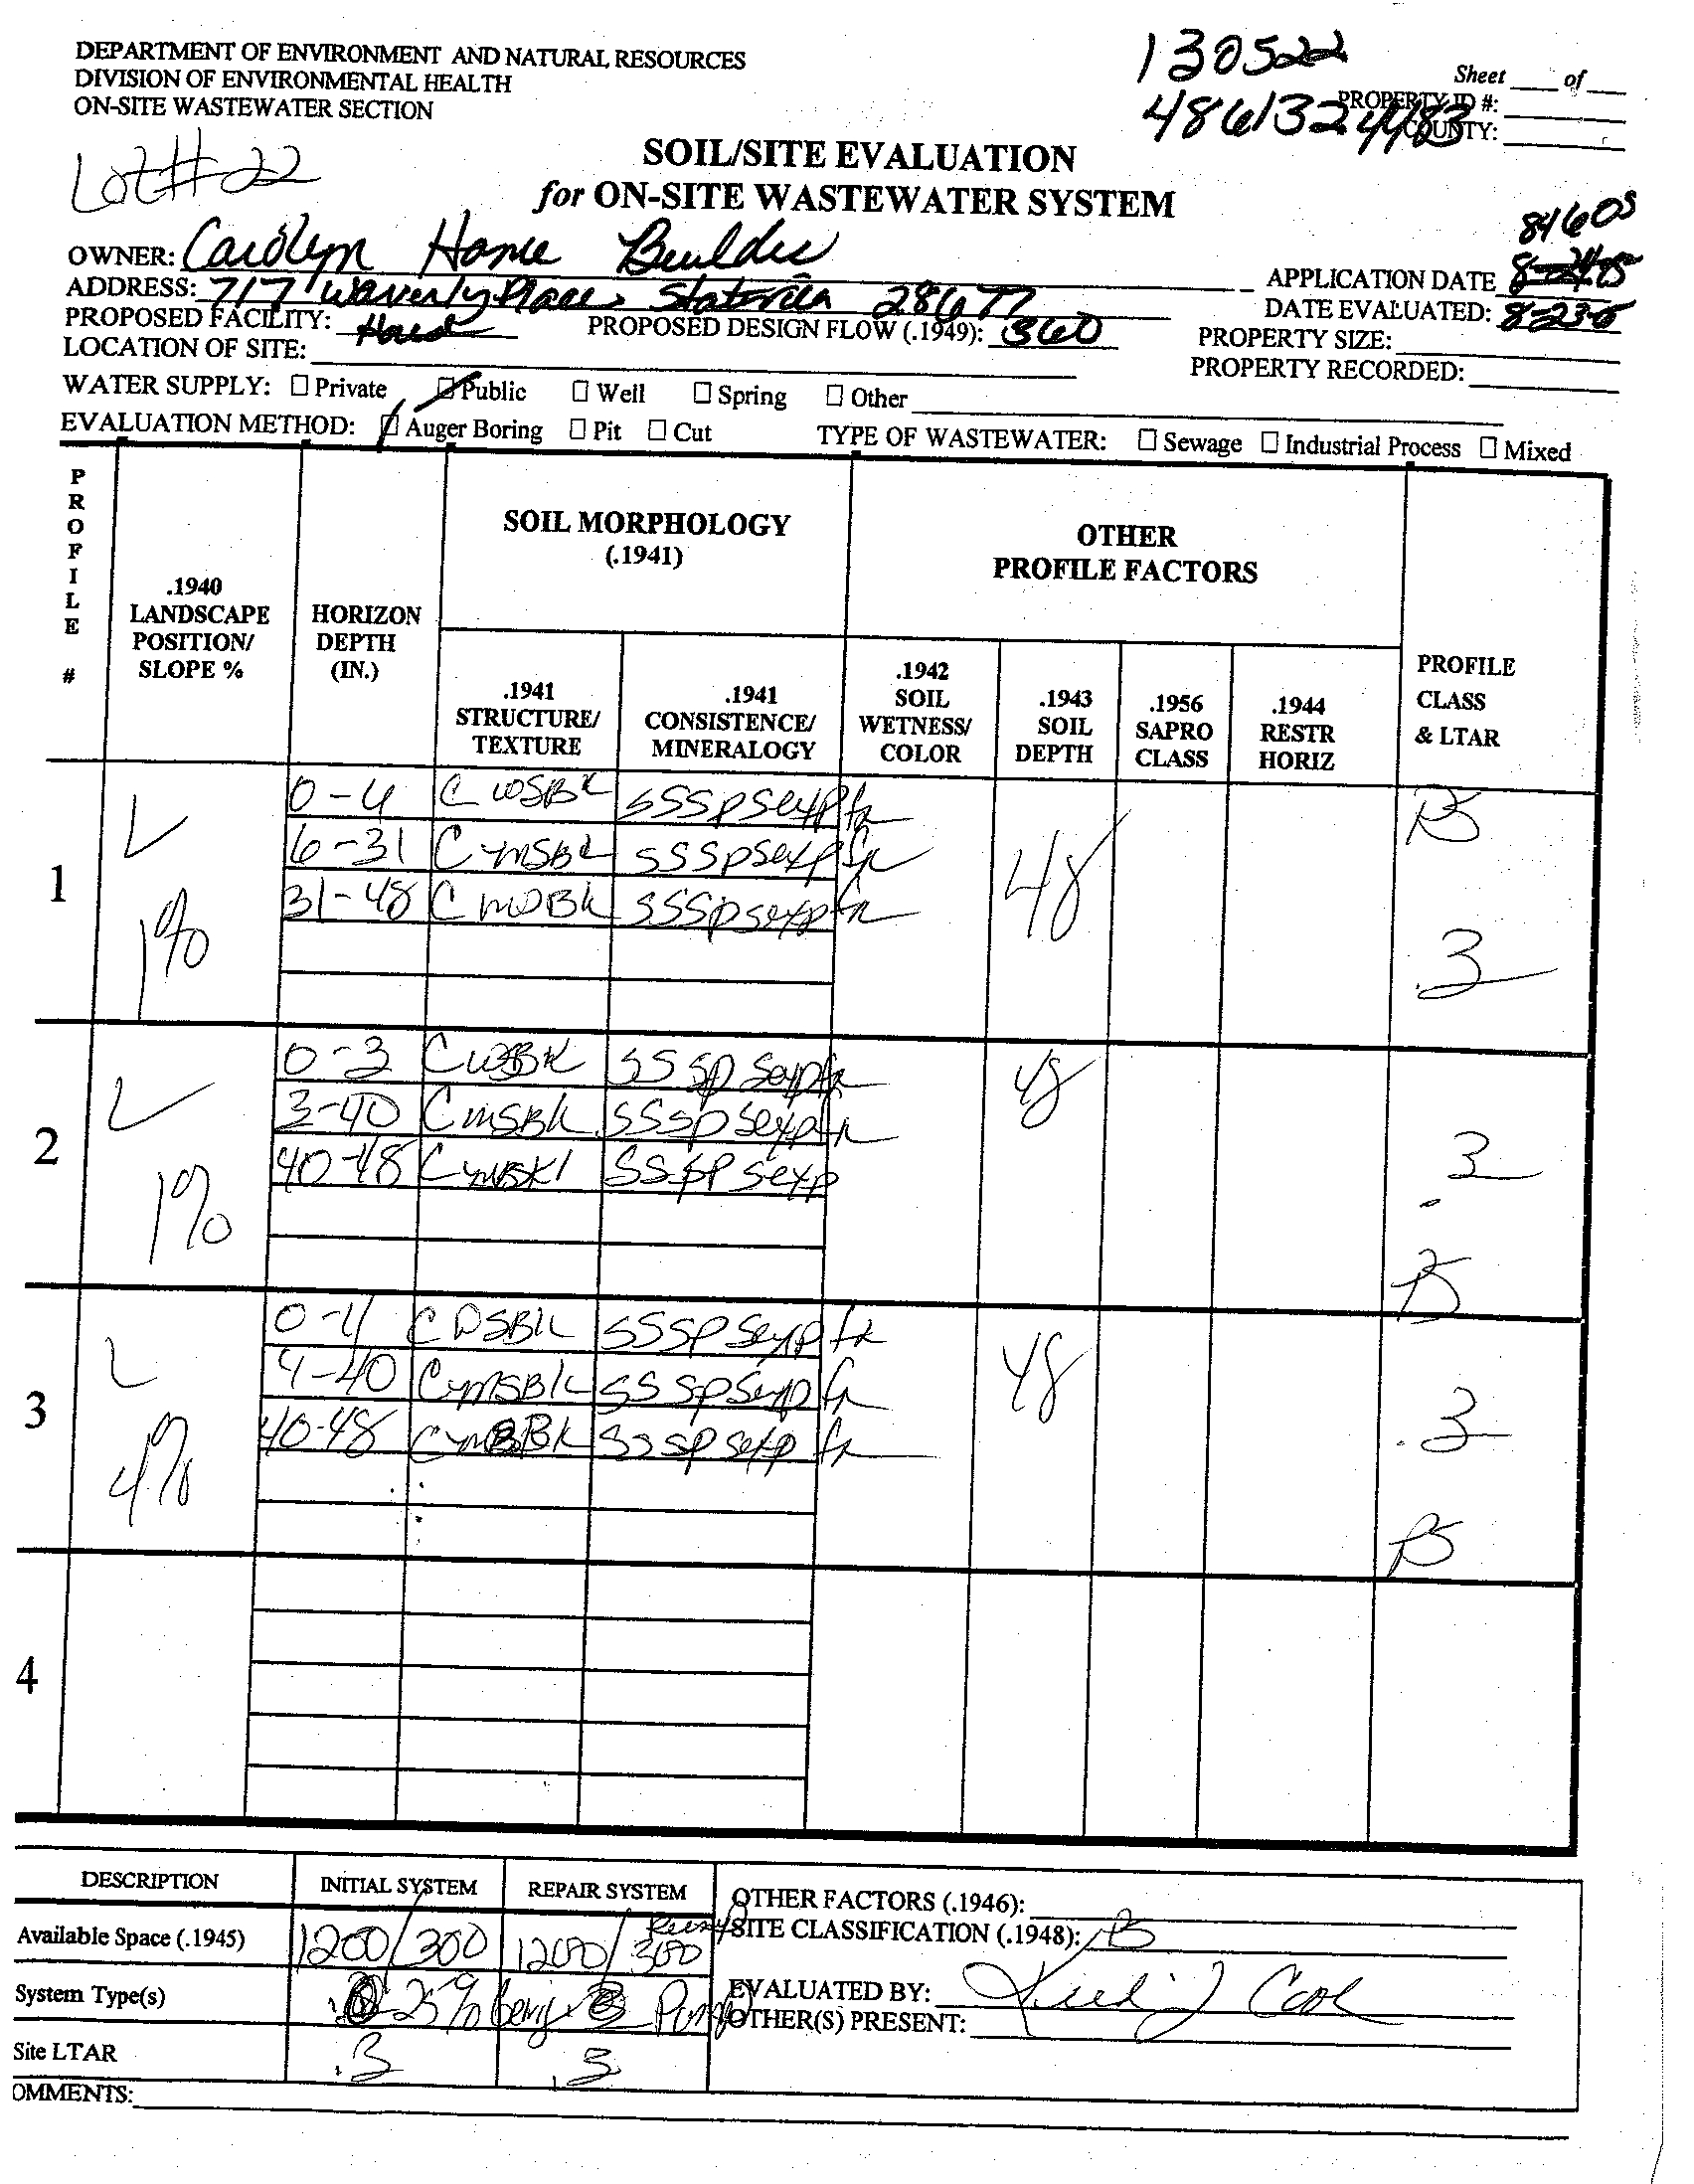 DEPARTMENT OF ENVIRONMENT AND NATURAL RESOURCES
DIVISION OF ENVIRONMENTAL HEALTH
ON-SITE WASTEWATER SECTION
130522
Sheet ___ of ___
PROPERTY ID #:
4861324483
COUNTY:
Lot# 22
SOIL/SITE EVALUATION
for ON-SITE WASTEWATER SYSTEM
OWNER: Home
ADDRESS: 717 Waverly Place, 28677
84605
APPLICATION DATE
PROPOSED FACILITY: PROPOSED DESIGN FLOW (.1949): 360
DATE EVALUATED:
LOCATION OF SITE:
PROPERTY SIZE:
PROPERTY RECORDED:
WATER SUPPLY: Private Public Well Spring Other
EVALUATION METHOD: Auger Boring Pit Cut TYPE OF WASTEWATER: Sewage Industrial Process Mixed
PROFILE #
.1940 LANDSCAPE POSITION/ SLOPE %
HORIZON DEPTH (IN.)
SOIL MORPHOLOGY (.1941)
.1941 STRUCTURE/ TEXTURE
.1941 CONSISTENCE/ MINERALOGY
OTHER PROFILE FACTORS
.1942 SOIL WETNESS/ COLOR
.1943 SOIL DEPTH
.1956 SAPRO CLASS
.1944 RESTR HORIZ
PROFILE CLASS & LTAR
1
L
1%
0-4 C WSBK SSSPSexp fr
6-31 C mSBK SSSPSexp fr
31-48 C SSSPSexp fr
48
PS
.3
2
L
1%
0-3 C SSSPSexp fr
3-40 C mSBK SSSPSexp fr
40-48 C SSSPSexp
48
.3
PS
3
L
4%
0-4 C SBK SSSPSexp fr
4-40 C mSBK SSSPSexp fr
40-48 C SSSPSexp fr
48
.3
PS
4
DESCRIPTION INITIAL SYSTEM REPAIR SYSTEM
Available Space (.1945) 1200/300 1200/300
System Type(s) 25% Pump
Site LTAR .3 .3
OTHER FACTORS (.1946):
SITE CLASSIFICATION (.1948): PS
EVALUATED BY:
OTHER(S) PRESENT:
OMMENTS: